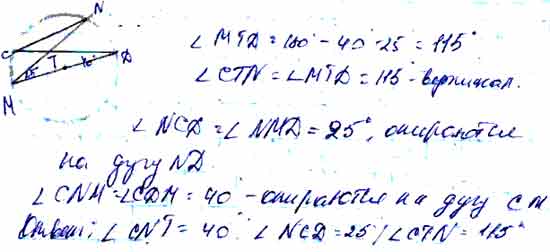 N
C T 40° D
25°
M
∠MTD = 180° - 40° - 25° = 115°
∠CTN = ∠MTD = 115° - вертикал.
∠NCD = ∠NMD = 25°, опираются
на дугу ND.
∠CNM = ∠CDM = 40° - опираются на дугу CM
Ответ: ∠CNT = 40°, ∠NCD = 25°, ∠CTN = 115°